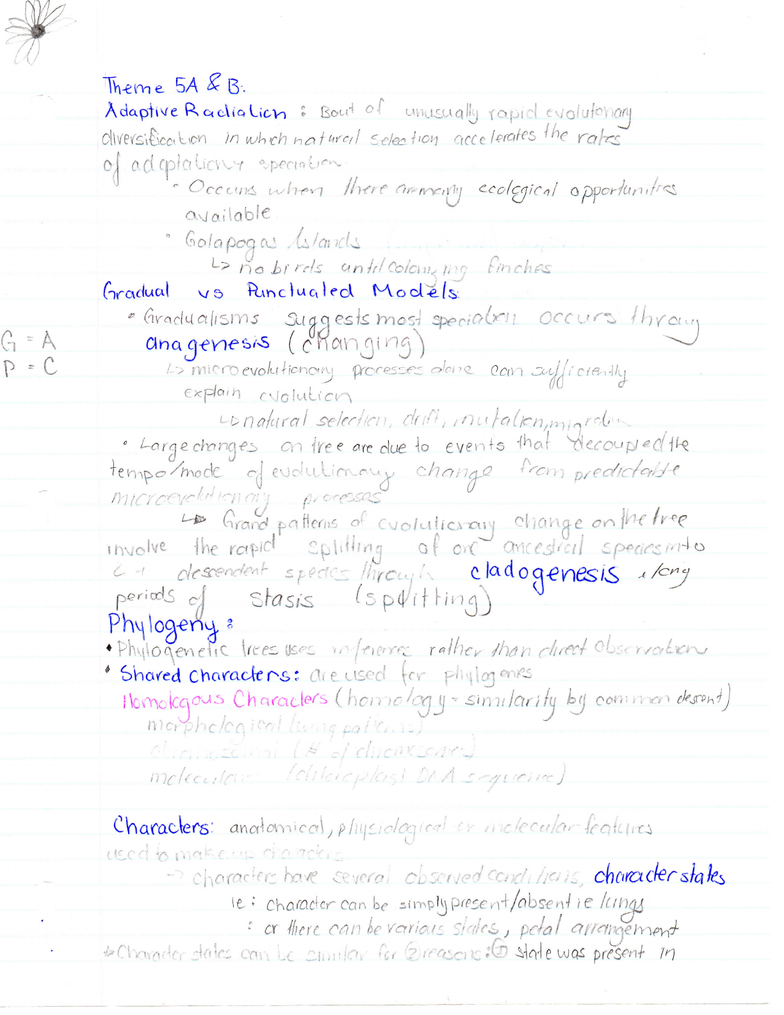 Theme 5A & B:
Adaptive Radiation : Bout of unusually rapid evolutionary
diversification in which natural selection accelerates the rates
of adaptation + speciation
• Occurs when there are many ecological opportunities
available
• Galapogas Islands
↳ no birds until colonizing finches
Gradual vs Punctuated Models
• Gradualisms suggests most speciation occurs throug
G = A
anagenesis (changing)
P = C
↳ microevolutionary processes alone can sufficiently
explain evolution
↳ natural selection, drift, mutation, migration
• Large changes on tree are due to events that decoupled the
tempo/mode of evolutionary change from predictable
microevolutionary processes
↳ Grand patterns of evolutionary change on the tree
involve the rapid splitting of one ancestral species into
descendent species through cladogenesis + long
periods of stasis (splitting)
Phylogeny :
• Phylogenetic trees uses inference rather than direct observation
• Shared characters: are used for phylogenies
Homologous Characters (homology - similarity by common descent)
morphological
chromosomal (# of chromosomes)
molecular (chloroplast DNA sequence)
Characters: anatomical, physiological or molecular features
used to make up characters
→ characters have several observed conditions, character states
ie : character can be simply present/absent ie lungs
: or there can be various states, petal arrangement
Character states can be similar for 2 reasons: ① state was present in